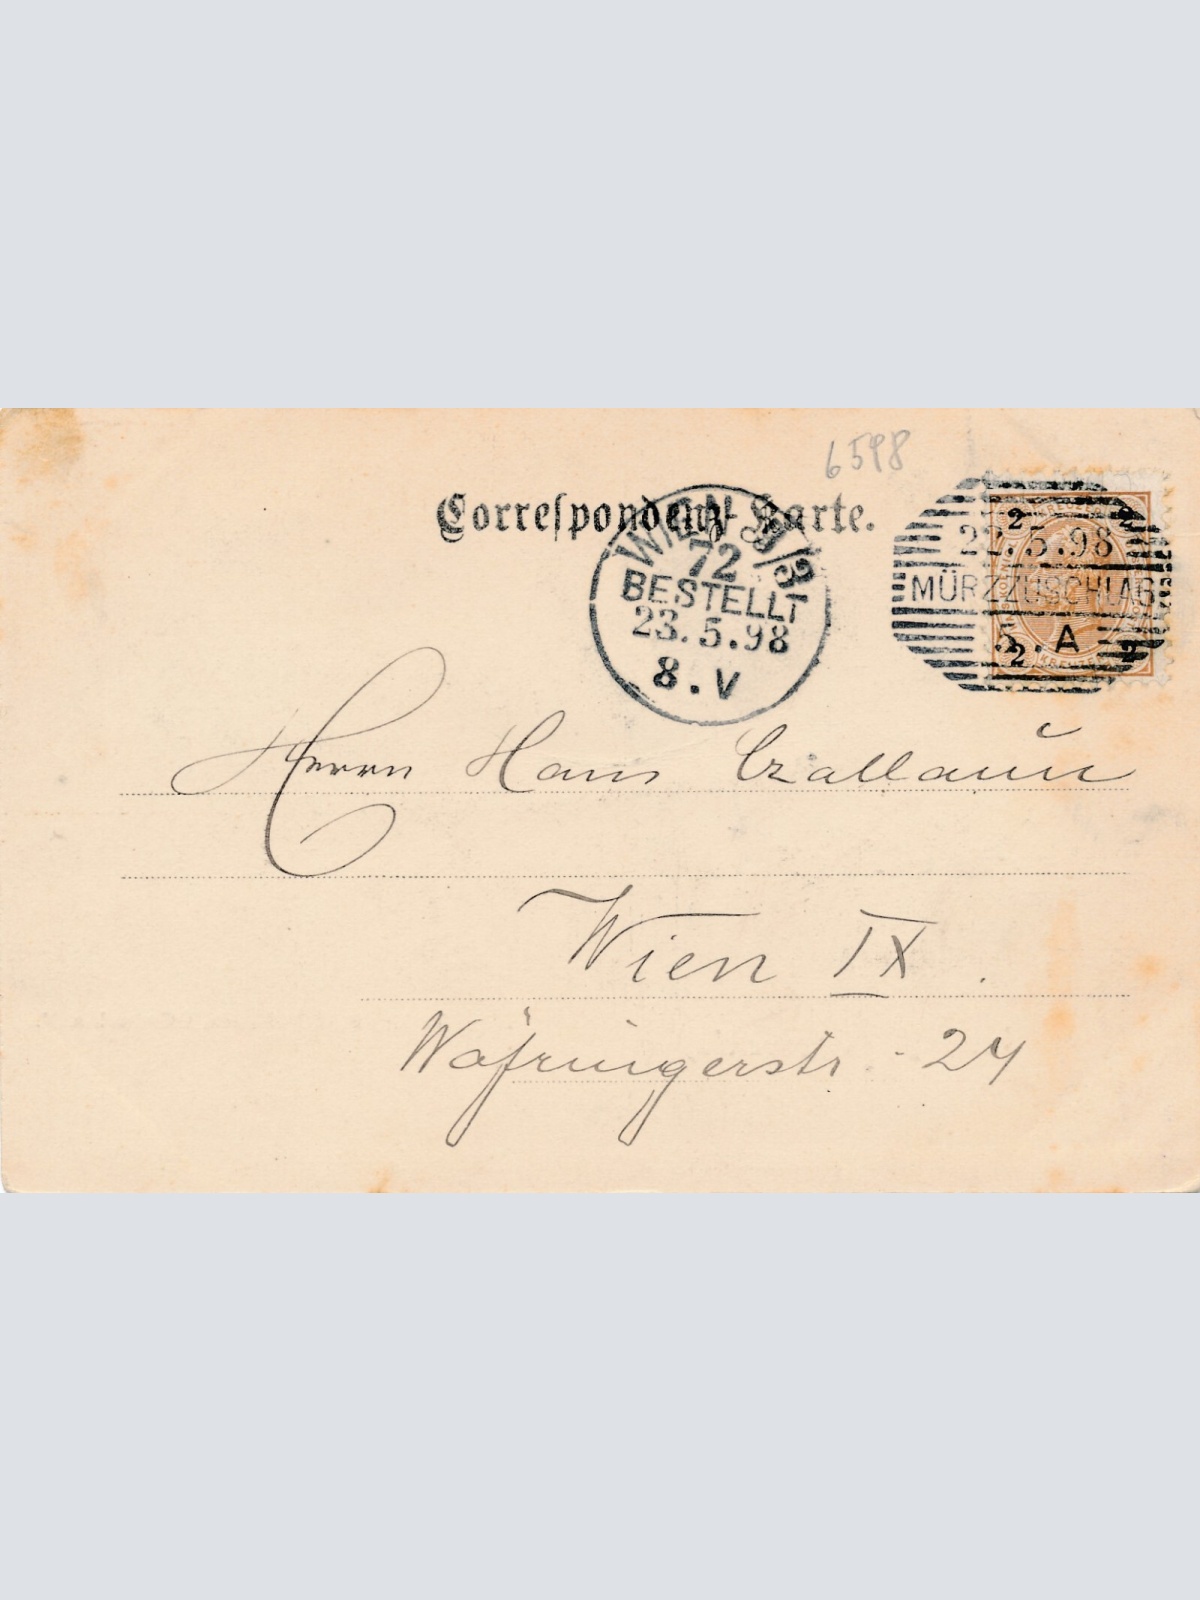 6598
Correspondenz-Karte.
WIEN 9/3
72
BESTELLT
23.5.98
8.V
2 2
22.5.98
MÜRZZUSCHLAG
5.A
2 2
Herrn Hans
Wien IX.
Währingerstr. 24